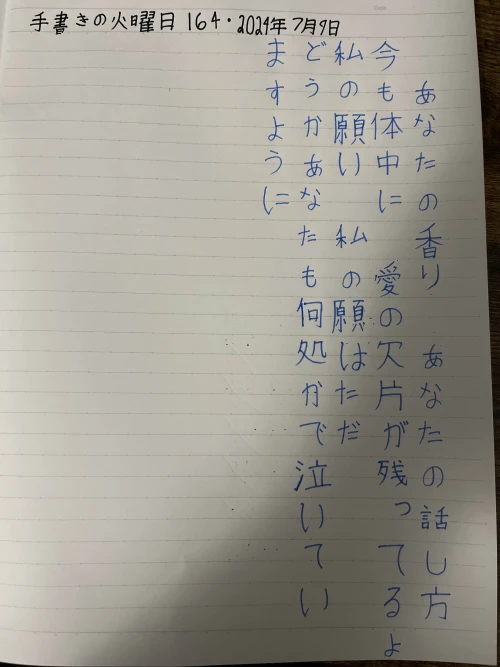 手書きの火曜日 164・2024年7月9日
あなたの香り あなたの話し方
今も体中に 愛の欠片が残ってるよ
私の願い 私の願はただ
どうかあなたも何処かで泣いてい
ますように